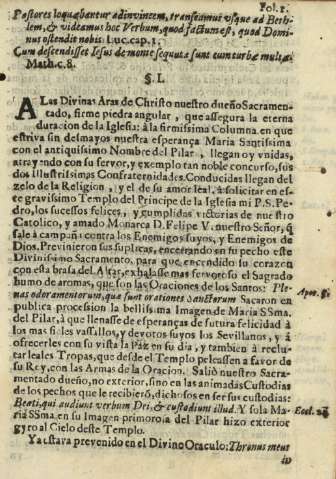 Fol. 1.
Pastores loquebantur adinvincem, transeamus vsque ad Beth-
lem, & videamus hoc Verbum, quod factum est, quod Domi-
nus ostendit nobis. Luc. cap. 1.
Cum descendisset Iesus de monte sequutæ sunt eum turbæ multæ.
Math. c. 8.
§. I.
A Las Divinas Aras de Christo nuestro dueño Sacramen-
tado, firme piedra angular, que assegura la eterna
duracion de la Iglesia: à la firmissima Columna, en que
estriva sin desmayos nuestra esperança Maria Santissima
con el antiquissimo Nombre del Pilar, llegan oy vnidas,
atrayendo con su fervor, y exemplo tan noble concurso, sus
dos Illustrissimas Confraternidades. Conducidas llegan del
zelo de la Religion, y el de su amor leal, à solicitar en es-
te gravissimo Templo del Principe de la Iglesia mi P. S. Pe-
dro, los sucessos felices, y cumplidas victorias de nuestro
Catolico, y amado Monarca D. Felipe V. nuestro Señor, q̃
sale à campaña contra los Enemigos suyos, y Enemigos de
Dios. Previnieron sus suplicas, encerrando en su pecho este
Divinissimo Sacramento, para que encendido su corazon
con esta brasa del Altar, exhalasse mas fervoroso el Sagrado
humo de aromas, que son las Oraciones de los Santos: Ple-
nas odoramentorum, quæ sunt orationes Sanctorum Sacaron en
Apoc. 5.
publica procession la bellissima Imagen de Maria SSma.
del Pilar, à que llenasse de esperanças de futura felicidad à
los mas fieles vassallos, y devotos suyos los Sevillanos, y à
ofrecerles con su vista la Paz en su dia, y tambien à reclu-
tar leales Tropas, que desde el Templo peleassen a favor de
su Rey, con las Armas de la Oracion. Saliò nuestro Sacra-
mentado dueño, no exterior, sino en las animadas Custodias
de los pechos que le recibierõ, dichosos en ser sus custodias:
Beati, qui audiunt verbum Dei, & custodiunt illud. Y sola Ma-
ria SSma. en su Imagen primorosa del Pilar hizo exterior
gyro al Cielo deste Templo.
Eccl. 24.
Ya estava prevenido en el Divino Oraculo: Thronus meus
in